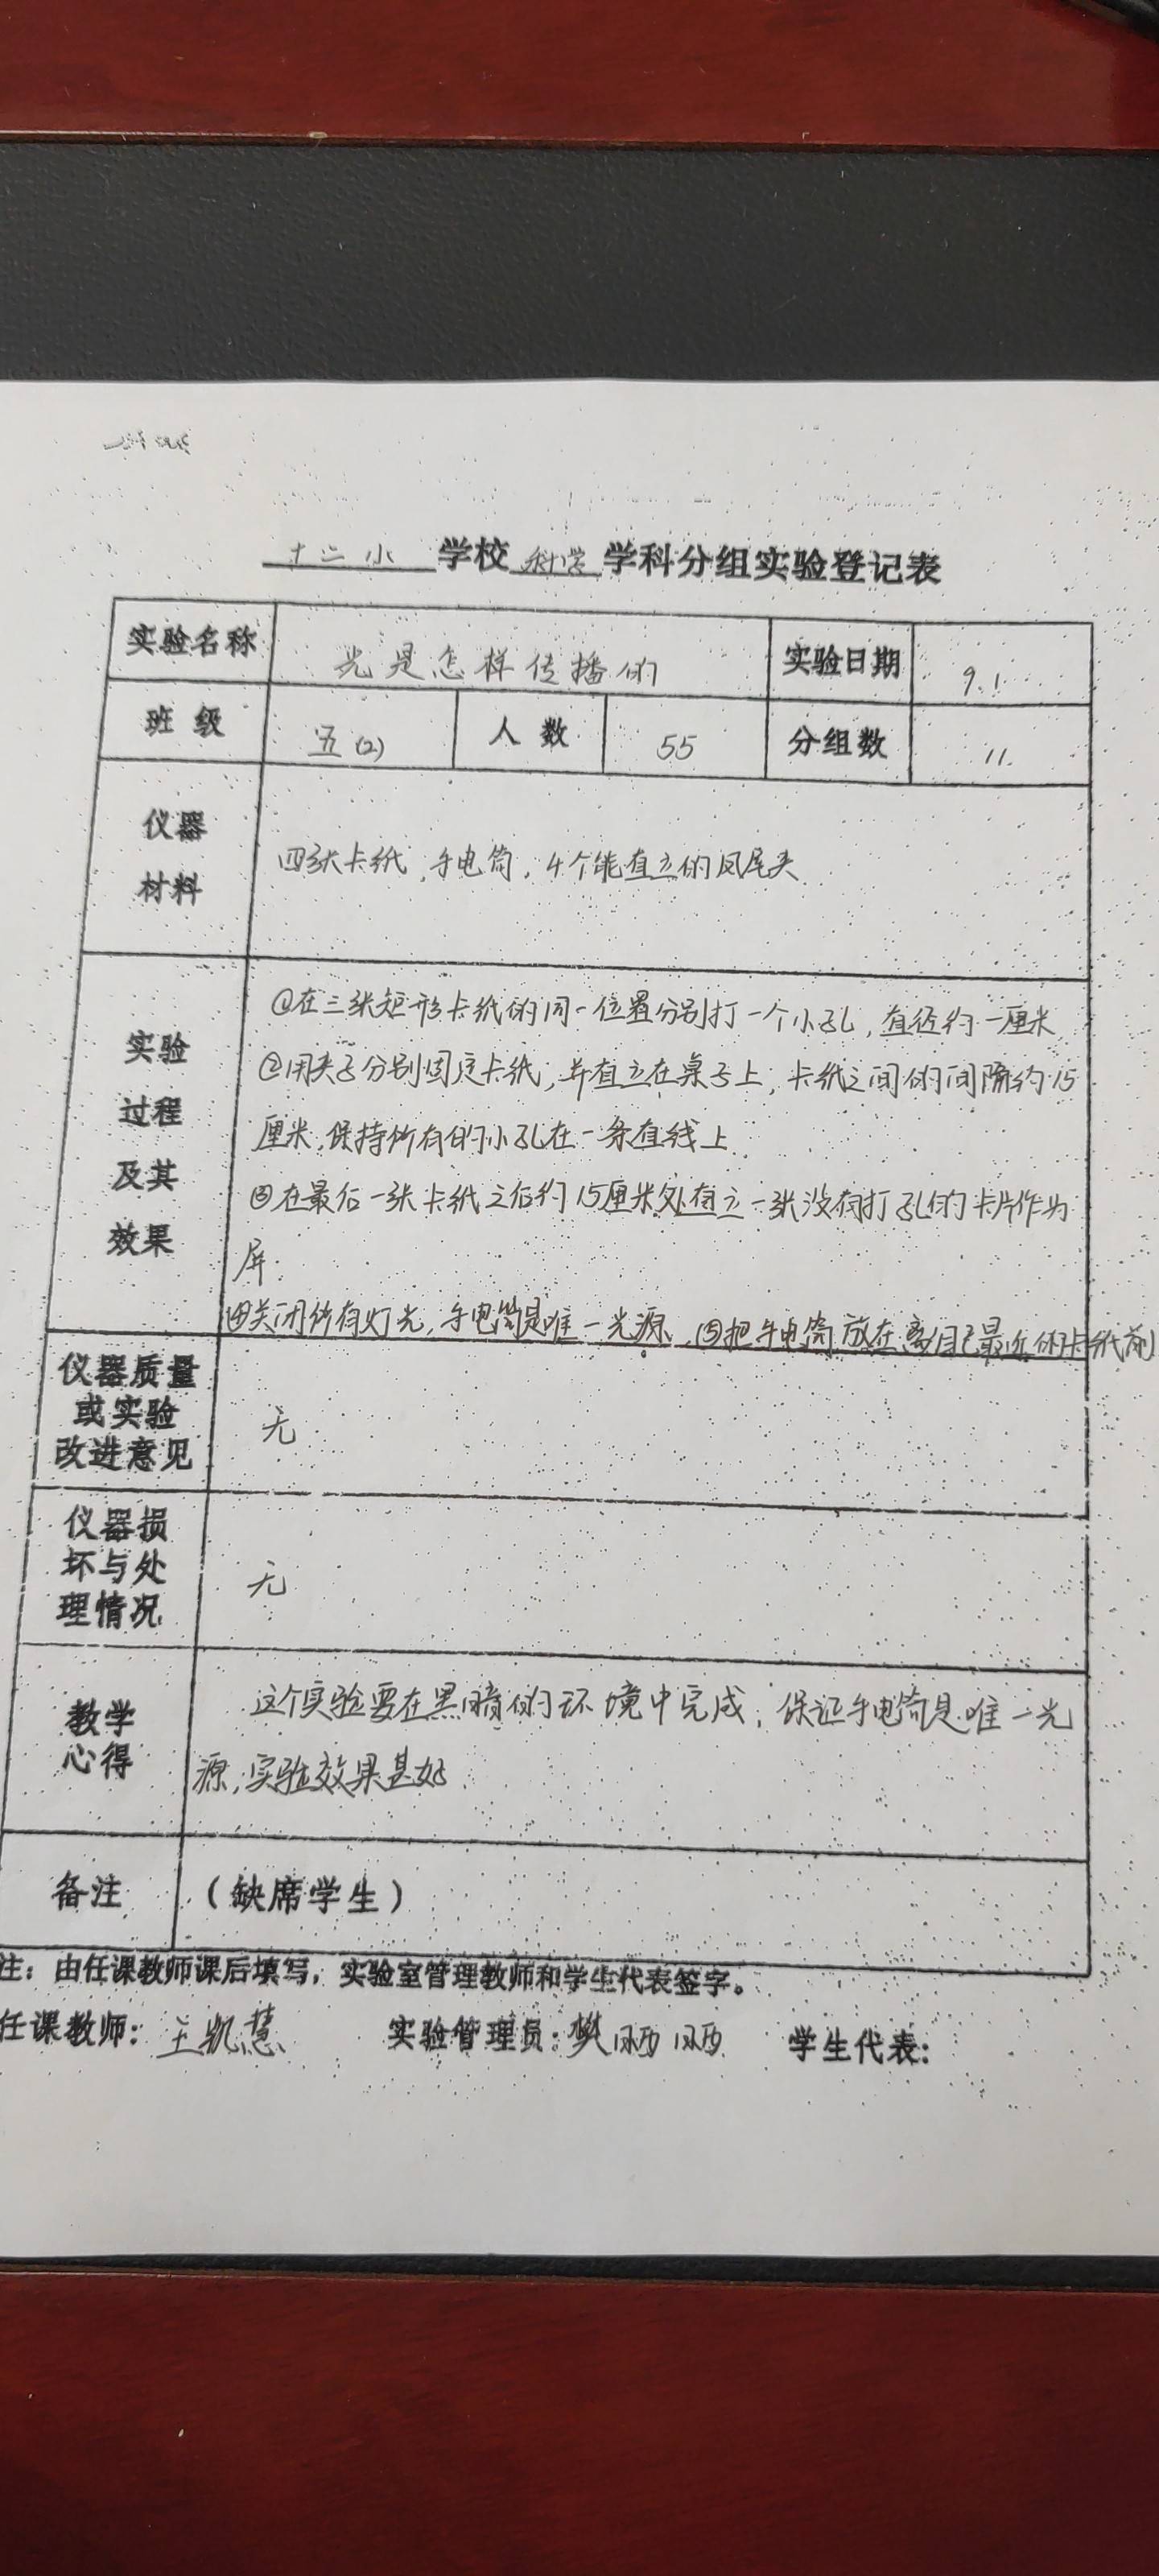 十二小学校科学学科分组实验登记表
实验名称 光是怎样传播的 实验日期 9.1
班级 五(2) 人数 55 分组数 11.
仪器
材料
四张卡纸,手电筒,4个能直立的凤尾夹
实验
过程
及其
效果
①在三张矩形卡纸的同一位置分别打一个小孔,直径约一厘米
②用夹子分别固定卡纸,并直立在桌子上,卡纸之间的间隔约15
厘米,保持所有的小孔在一条直线上.
③在最后一张卡纸之后约15厘米处直立一张没有打孔的卡片作为
屏.
④关闭所有灯光,手电筒是唯一光源、⑤把手电筒放在离自己最近的卡纸前
仪器质量
或实验
改进意见
无
仪器损
坏与处
理情况
无
教学
心得
这个实验要在黑暗的环境中完成,保证手电筒是唯一光
源,实验效果甚好.
备注 (缺席学生)
注:由任课教师课后填写,实验室管理教师和学生代表签字。
任课教师:王凯慧 实验管理员:樊昞昞 学生代表: